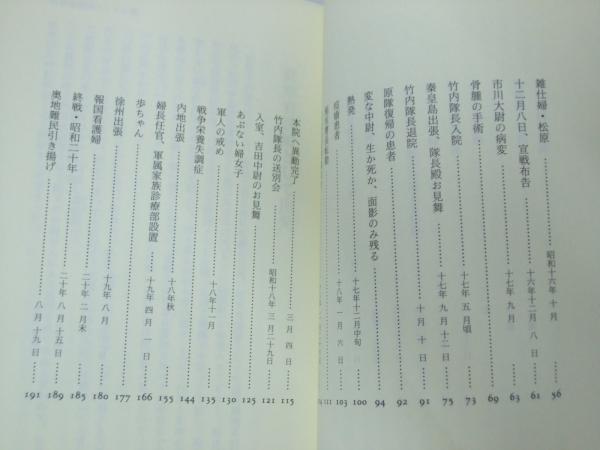 雑仕婦・松原 昭和十六年 十月 56
十二月八日、宣戦布告 十六年十二月 八 日 61
市川大尉の病変 十七年 九月 63
骨腫の手術 69
竹内隊長入院 十七年 五月頃 73
秦皇島出張、隊長殿お見舞 十七年 九月 十二日 75
竹内隊長退院 十月 十 日 91
原隊復帰の患者 92
変な中尉、生か死か、面影のみ残る 94
熱発 十七年十二月中旬 100
疽患者 十八年 一月 六 日 103
111
本院へ異動完了 三月 四 日 115
竹内隊長の送別会 昭和十八年 三月二十九日 121
入室、吉田中尉のお見舞 125
あぶない婦女子 130
軍人の戒め 十八年十一月 135
戦争栄養失調症 144
内地出張 十八年秋 155
婦長任官、軍属家族診療部設置 十九年 四月 一 日 166
歩ちゃん 177
徐州出張 十九年 八月 180
報国看護婦 二十年 二月末 185
終戦・昭和二十年 二十年 八月 十五日 189
奥地難民引き揚げ 八月 十九日 191